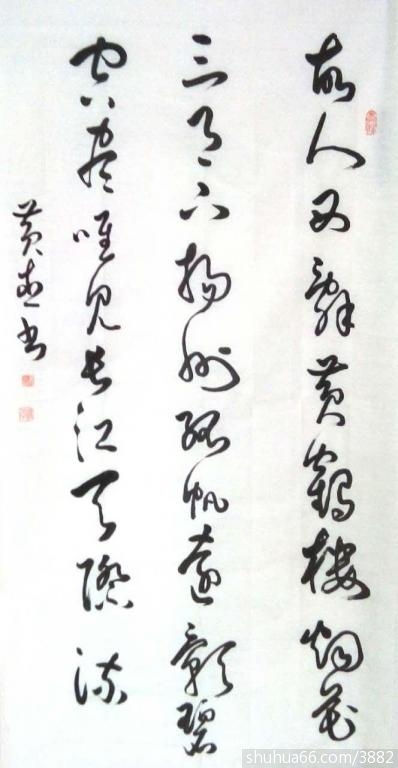 故人西辭黄鶴樓烟花
三月下揚州孤帆遠影碧
空盡唯見長江天際流
黄 书
shuhua66.com/3882